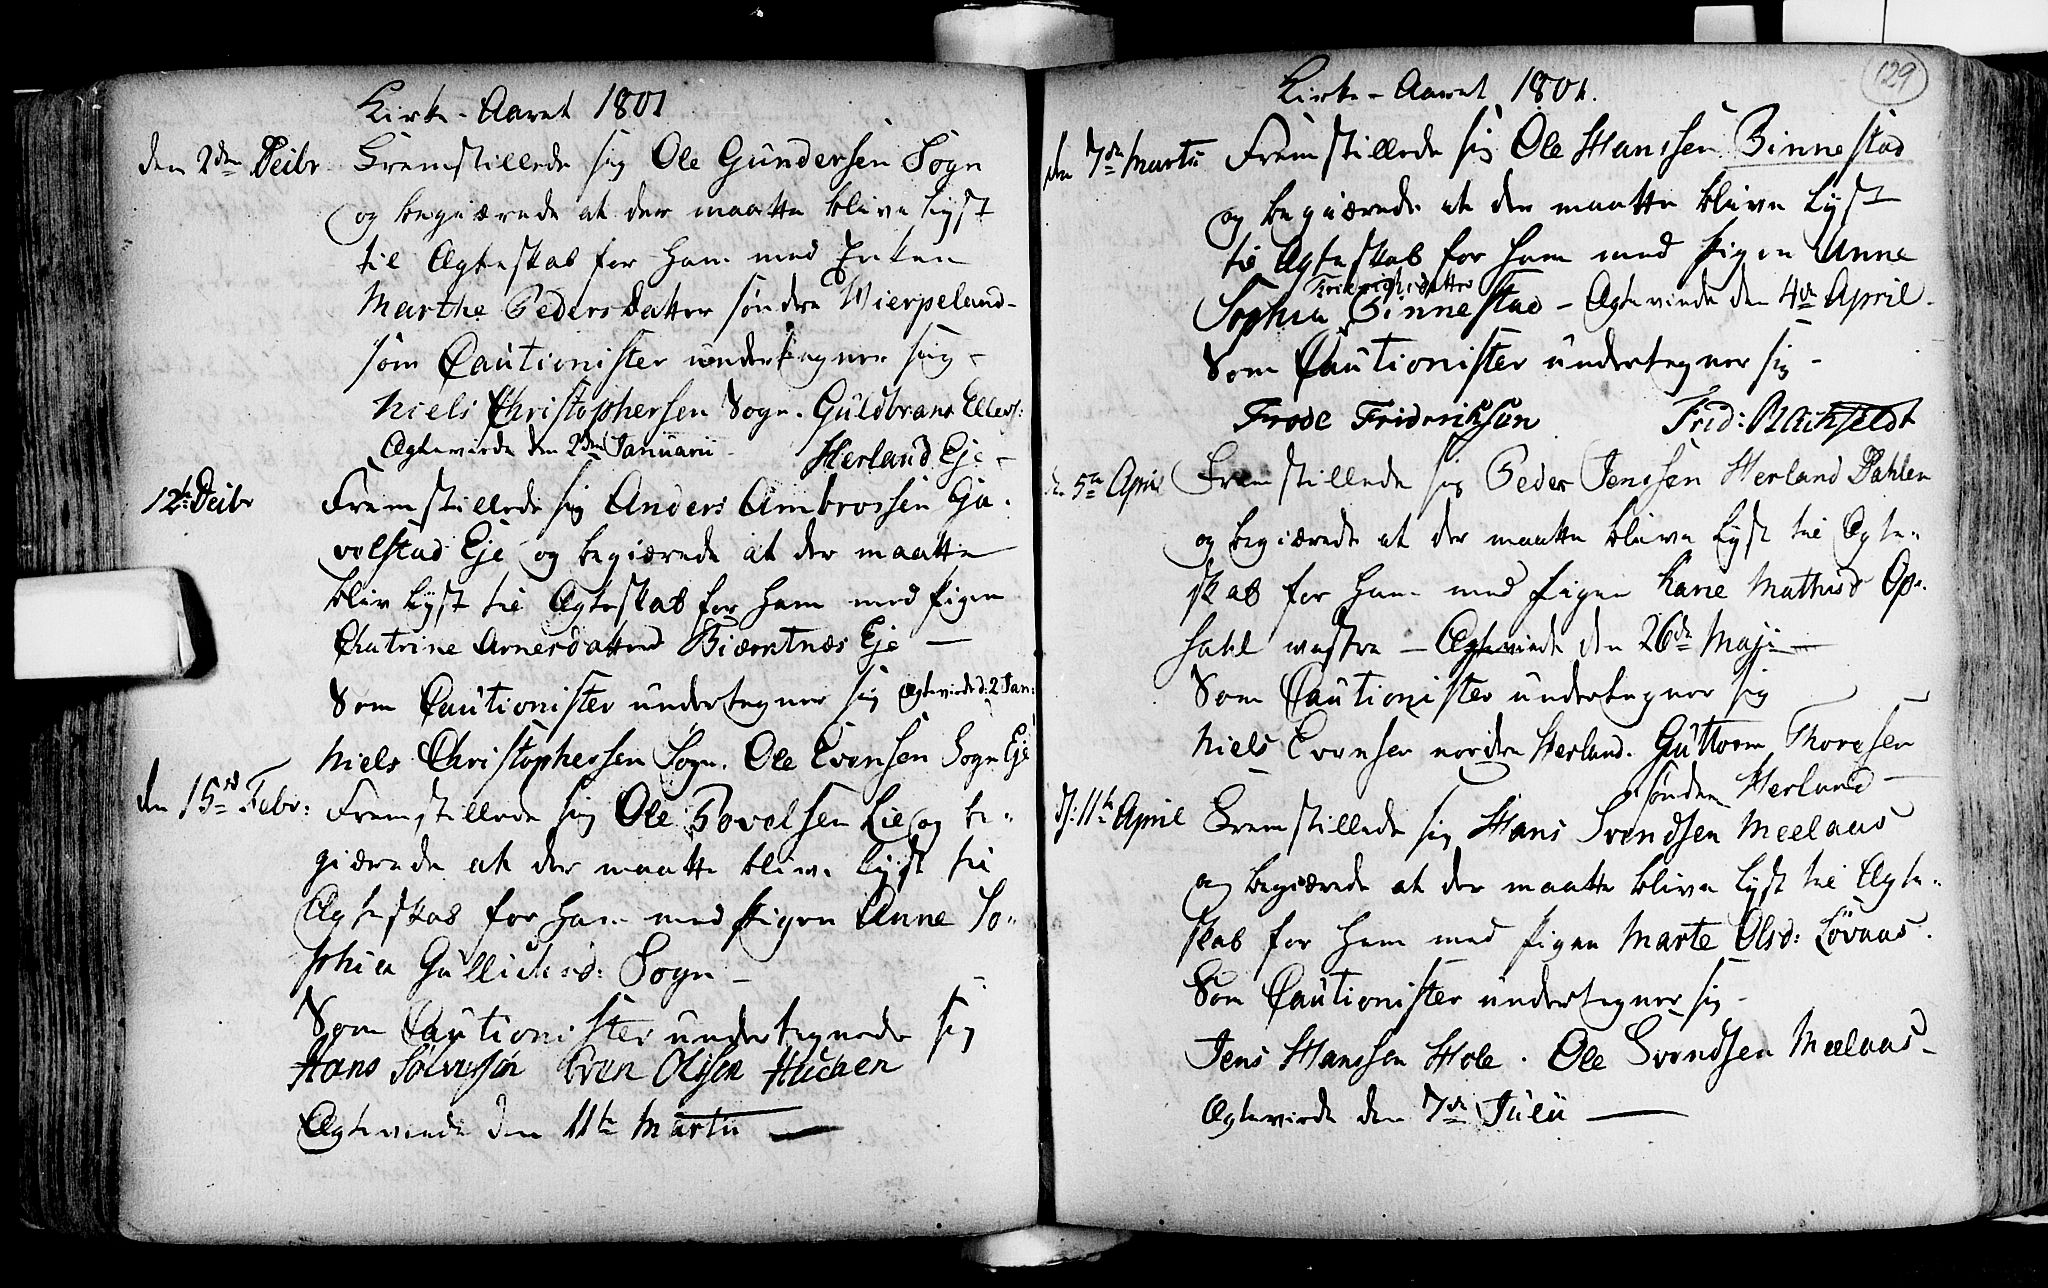 Kirke-Aaret 1801
den 2den Xeibr Fremstillede sig Ole Gundersen Sogn
og begiærede at der maatte blive lyst
til Ægteskab for ham med Enken
Marthe Pedersdatter søndre Wierpeland-
som Cautionister undertegner sig -
Niels Christophersen Sogn. Guldbrand Ellevs:
Ægteviede den 2den Januarii - Herland Eje -
12te Xeibr Fremstillede sig Anders Ambrossen Ga-
volstad Eje og begiærede at der maatte
bliv lyst til Ægteskab for ham med Pigen
Chatrine Arnesdatter Biærntnæs Eje -
Som Cautionister undertegner sig Ægteviede d: 2 Jan:
Niels Christophersen Sogn. Ole Evensen Sogn Eje
den 15de Febr: Fremstillede sig Ole Povelsen Lie og be-
giærede at der maatte blive lyst til
Ægteskab for ham med Pigen Anne So-
phia Gullichsd: Sogn -
Som Cautionister undertegnede sig
Hans Solvessøn Even Olssen
Ægteviede den 11te Martii -
129
Kirke-Aaret 1801.
den 7de Martii Fremstillede sig Ole Hanssen Binnestad
og begiærede at der maatte blive lyst
til Ægteskab for ham med Pigen Anne
Friderichsdatter
Sophia Binnestad - Ægteviede den 4de April -
Som Cautionister undertegner sig -
Frode Friderichsøn Frid:
den 5te April Fremstillede sig Peder Jenssen Herland Dahlen
og begiærede at der maatte blive lyst til Ægte-
skab for ham med Pigen Karie Mathisd Op-
sahl westre - Ægteviede den 26de Maji -
Som Cautionister undertegner sig
Niels Evensen nordre Herland. Guttorm Thoresen
søndre Herland -
D: 11te April Fremstillede sig Hans Svendsen Meelaas
og begiærede at der maatte blive lyst til Ægte-
skab for ham med Pigen Marte Olsd: Løvaas.
Som Cautionister undertegner sig -
Jens Hanssen Hole. Ole Svendsen Meelaas -
Ægteviede den 7de Julii -